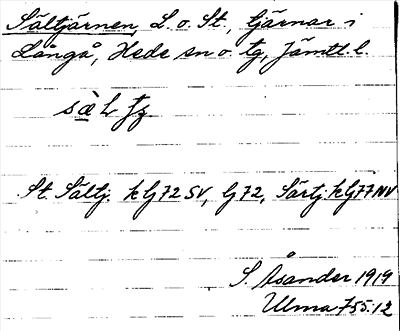 Sältjärnen, L. o. St., tjärnar i
Långå, Hede sn o. tg, Jämtl. l.
St. Sältj. k G72 SV, G72, Särtj. k G77 NV
S. Åsander 1919
Ulma 755:12